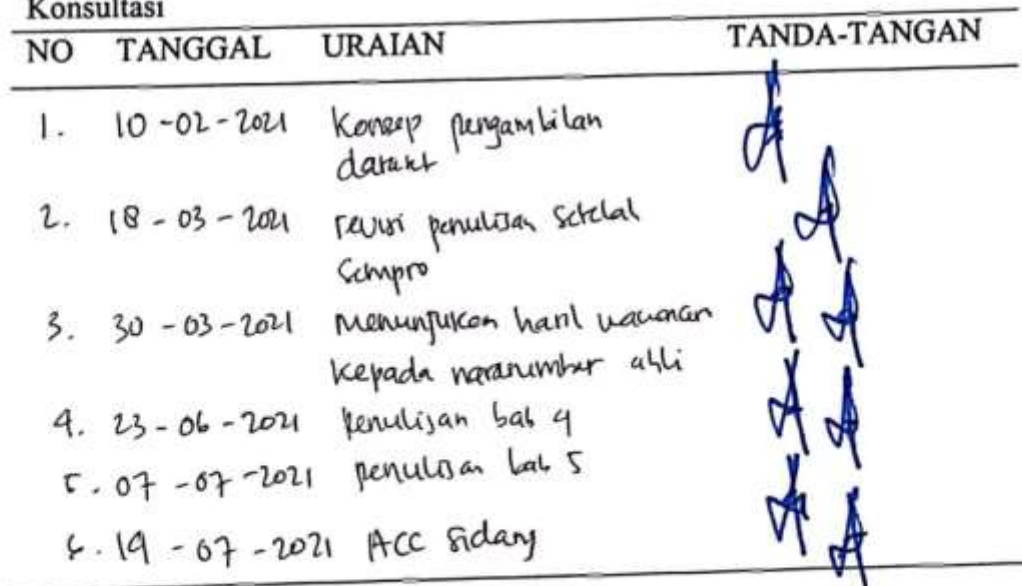 Konsultasi
NO TANGGAL URAIAN TANDA-TANGAN
1. 10-02-2021 Konsep pengambilan
2. 18-03-2021 revisi penulisan setelah
Sempro
3. 30-03-2021 Menunjukan hasil wawancara
kepada narasumber ahli
4. 23-06-2021 penulisan bab 4
5. 07-07-2021 penulisan bab 5
6. 19-07-2021 ACC Sidang